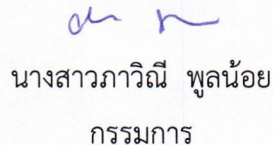 นางสาวภาวิณี พูลน้อย
กรรมการ